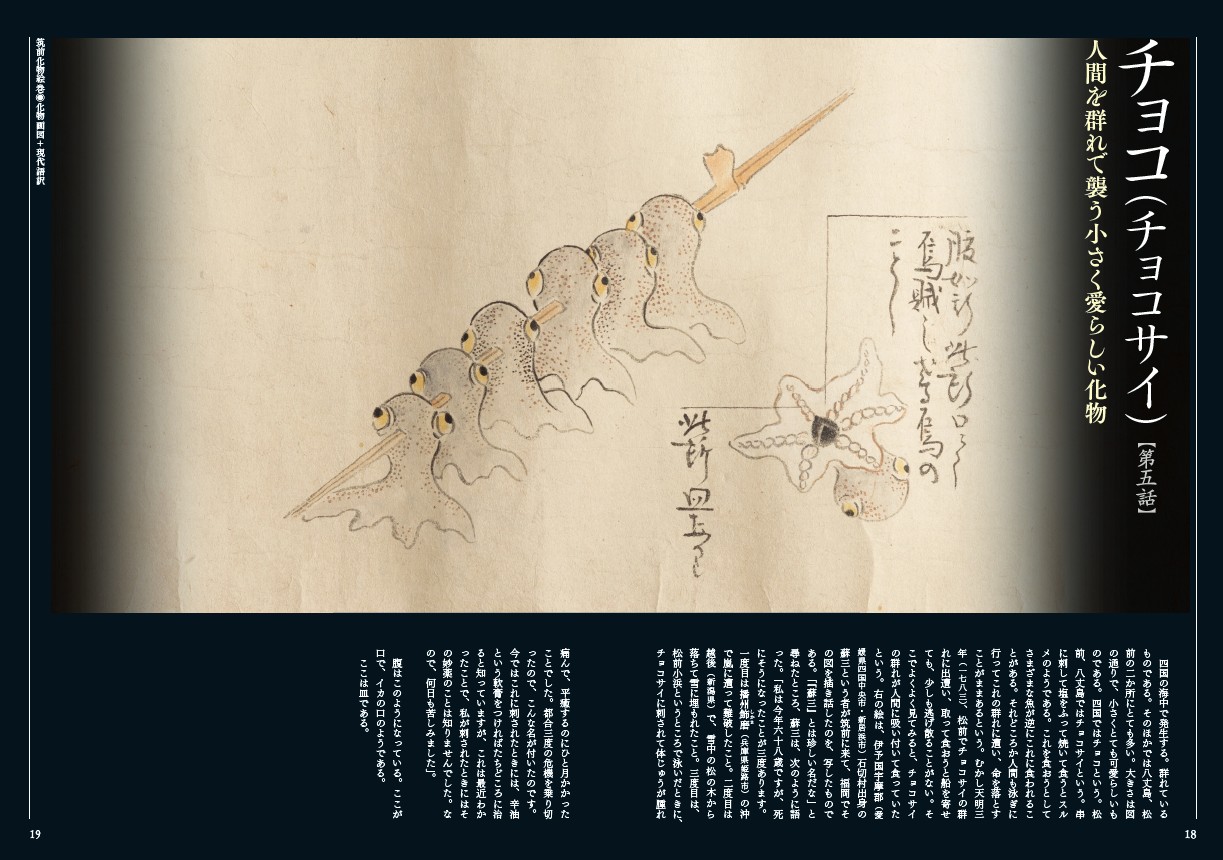 チョコ（チョコサイ）【第五話】
人間を群れで襲う小さく愛らしい化物
腹如斯 此所口く
烏賊し 烏の
こと〳〵
此所皿也
四国の海中で発生する。群れている
ものである。そのほかでは八丈島、松
前の二か所にとても多い。大きさは図
の通りで、小さくとても可愛らしいも
のである。四国ではチョコという。松
前、八丈島ではチョコサイという。串
に刺して塩をふって焼いて食うとスル
メのようである。これを食おうとして
さまざまな魚が逆にこれに食われるこ
とがある。それどころか人間も泳ぎに
行ってこれの群れに遭い、命を落とす
ことがままあるという。むかし天明三
年（一七八三）、松前でチョコサイの群
れに出遭い、取って食おうと船を寄せ
ても、少しも逃げ散ることがない。そ
こでよくよく見てみると、チョコサイ
の群れが人間に吸い付いて食っていた
という。右の絵は、伊予国宇摩郡（愛
媛県四国中央市・新居浜市）石切村出身の
蘇三という者が筑前に来て、福岡でそ
の図を描き話したのを、写したもので
ある。「「蘇三」とは珍しい名だな」と
尋ねたところ、蘇三は、次のように語
った。「私は今年六十八歳ですが、死
にそうになったことが三度あります。
一度目は播州飾磨（兵庫県姫路市）の沖
で嵐に遭って難破したこと。二度目は
越後（新潟県）で、雪中の松の木から
落ちて雪に埋もれたこと。三度目は、
松前小浜というところで泳いだときに、
チョコサイに刺されて体じゅうが腫れ
痛んで、平癒するのにひと月かかった
ことでした。都合三度の危機を乗り切
ったので、こんな名が付いたのです。
今ではこれに刺されたときには、辛油
という軟膏をつければたちどころに治
ると知っていますが、これは最近わか
ったことで、私が刺されたときにはそ
の妙薬のことは知りませんでした。な
ので、何日も苦しみました」。
腹はこのようになっている。ここが
口で、イカの口のようである。
ここは皿である。
筑前化物絵巻◉化物画図＋現代語訳
18
19